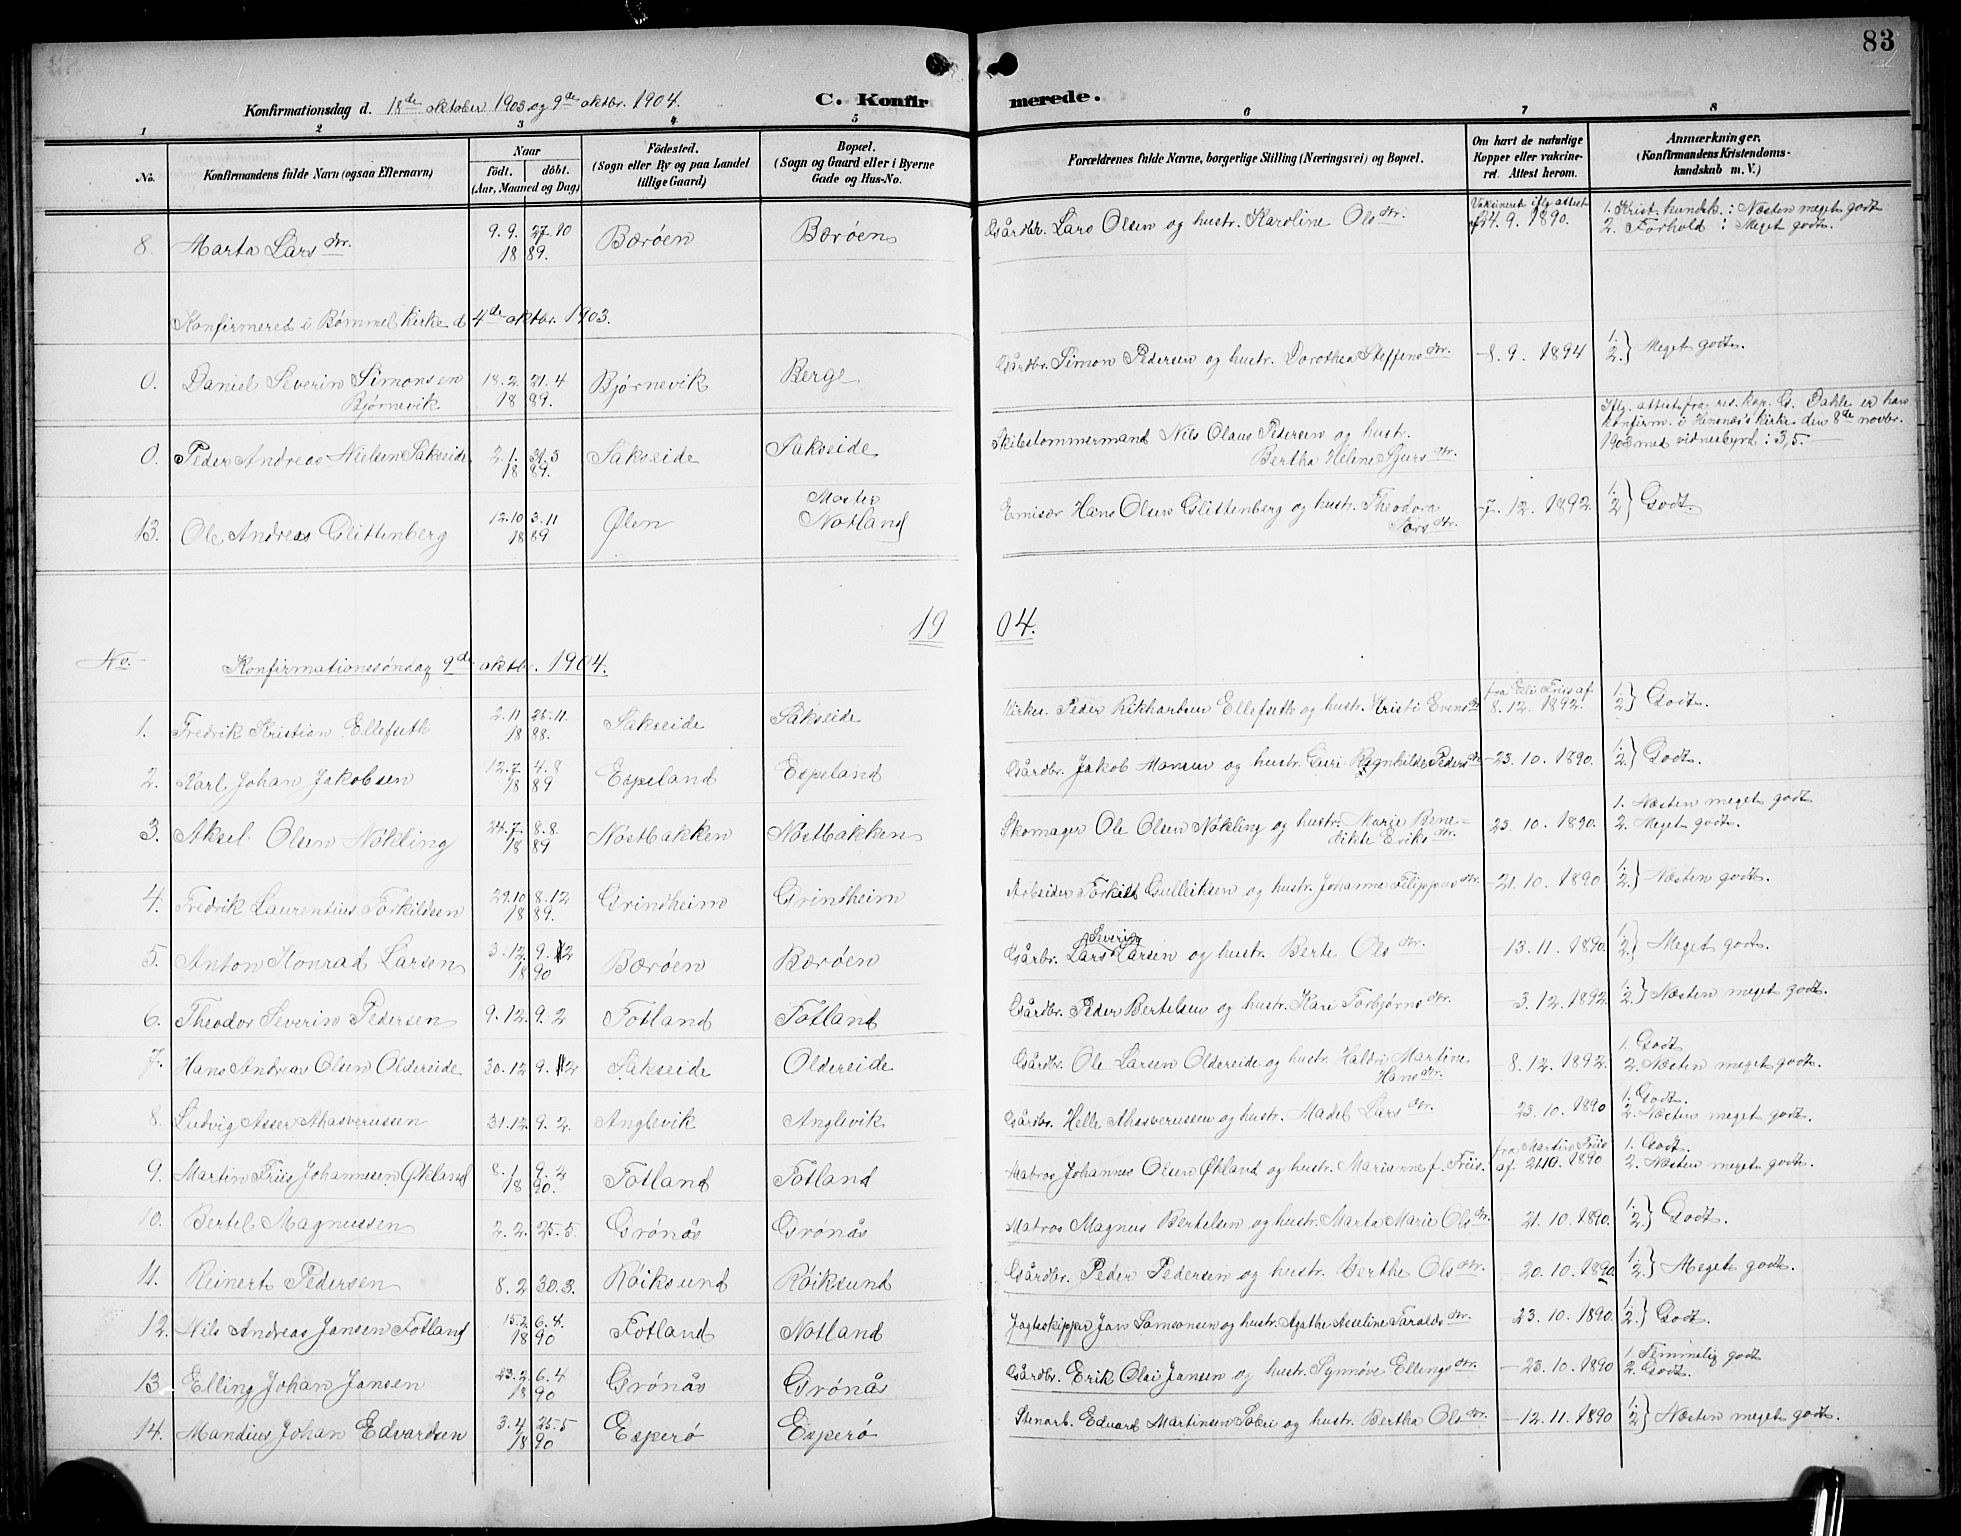 83
Konfirmationsdag d. 18de oktober 1903 og 9de oktbr. 1904.
C. Konfirmerede.
1 2 3 4 5 6 7 8
No.
Konfirmandens fulde Navn (ogsaa Efternavn)
Naar
födt. döbt.
(Aar, Maaned og Dag)
Födested.
(Sogn eller By og paa Landet
tillige Gaard)
Bopæl.
(Sogn og Gaard eller i Byerne
Gade og Hus-No.
Forældrenes fulde Navne, borgerlige Stilling (Næringsvei) og Bopæl.
Om havt de naturlige
Kopper eller vakcine-
ret. Attest herom.
Anmærkninger.
(Konfirmandens Kristendoms-
kundskab m. V.)
8 Marta Larsdtr. 9.9. 1889. 27.10 Bærøen Bærøen Gårdbr. Lars Olsen og hustr. Karoline Olsdtr. Vaksineret iflg attest af 14.9.1890. 1. Krist. kundsk.: Næsten meget godt
2. Forhold: Meget godt.
Konfirmered i Bømmel kirke d 4de oktbr. 1903.
0. Daniel Severin Simonsen Bjørnevik 18.2 1889. 21.4 Bjørnevik Berge Gårdbr. Simon Pedersen og hustr. Dorothea Steffensdtr. – 8.9.1894 1. 2. } Meget godt.
0. Peder Andreas Nielsen Sakseide 2.1. 1889. 31.3 Sakseide Sakseide Skibstømmermand Nils Olaus Pedersen og hustr. Bertha Helene Sjursdtr.
Iflg. attest fra res. kap. G. Dahle er han
konfirm. i kirke den 8de novbr.
1903 med vidnesbyrd: 3,5.
13. Ole Andreas Glittenberg 12.10 1889 3.11 Ølen Moster Notland Emisær Hans Olsen Glittenberg og hustr. Theodora – 7.12.1892. 1. 2 } Godt.
1904.
No. Konfirmationssøndag 9de oktbr. 1904.
1. Fredrik Kristian Ellefseth 2.11 1888. 25.11. Sakseide Sakseide Kirkes. Peder Rikhartsen Ellefseth og hustr. Kristi Evensdtr fra Eli Friis af 8.12.1892. 1. 2. } Godt.
2. Karl Johan Jakobsen 12.7 1889 4.8 Espeland Espeland Gårdbr. Jakob Monsen og hustr. Guri Ragnhilde Pedersdtr – 23.10.1890. 1. 2. } Godt.
3. Aksel Olsen Nøkling 24.7. 1889 8.8. Nøstbakken Nøstbakken Skomager Ole Olsen Nøkling og hustr. Marie Bene-
dikte Eriksdtr. – 23.10.1890. 1. Næsten meget godt
2. Meget godt.
4. Fredrik Laurentius Torkildsen 29.10 1889. 8.12 Grindheim Grindheim Arbeider Torkild Gulleiksen og hustr. Johanna Filippusdtr. – 21.10.1890 1. 2. } Næsten godt.
5. Anton Konrad Larsen 3.12 1890 9.2 Bærøen Bærøen Gårbr. Lars Severin Larsen og hustr. Berte Olsdtr. – 13.11.1890. 1. 2. } Meget godt.
6. Theodor Severin Pedersen 9.12. 9.2 Fotland Fotland Gårdbr. Peder Bertelsen og hustr. Kari Torbjørnsdtr. – 3.12.1892 1. 2. } Næsten meget godt.
7. Hans Andreas Olsen Oldereide 30.12 9.2 Sakseide Oldereide Gårdbr. Ole Larsen Oldereide og hustr. Haldri Martine
Hansdtr. – 8.12.1892. 1. Godt
2. Næsten meget godt.
8. Ludvig Asser Ahasverussen 31.12. 9.2. Anglevik Anglevik Gårdbr. Helle Ahasverussen og hustr. Madel Larsdtr. – 23.10.1890 1. Godt.
2. Næsten meget godt.
9. Martin Friis Johannesen Økland 8.1. 1890. 9.2 Fotland Fotland Matros Johannes Olsen Økland og hustr. Marianne f. Friis. fra Martin Friis
af 21.10.1890 1. Godt.
2. Næsten meget godt.
10. Bertel Magnussen 2.2. 25.5. Grønås Grønås Matros Magnus Bertelsen og hustr. Marta Marie Olsdtr. – 21.10.1890. 1. 2. } Godt.
11. Reinert Pedersen 8.2 30.3. Røiksund Røiksund Gårdbr. Peder Pedersen og hustr. Berthe Olsdtr. – 20.10.1890. 1. 2. } Meget godt.
12. Nils Andreas Jansen Fotland 15.2 1890 6.4. Fotland Notland Jagteskipper Jan Samsonsen og hustr. Agathe Asseline Taraldsdtr. – 23.10.1890. 1. 2. } Godt.
13. Elling Johan Jansen 23.2 1890 6.4 Grønås Grønås Gårdbr. Erik Olai Jansen og hustr. Synnøve Ellingsdtr. – 23.10.1890 1. Temmelig godt
2. Godt.
14. Mandius Johan Edvardsen 3.4 1890 25.5 Esperø Esperø Stenarb. Edvard Martinsen og hustr. Bertha Olsdtr. – 12.11.1890 1. 2 } Næsten meget godt.